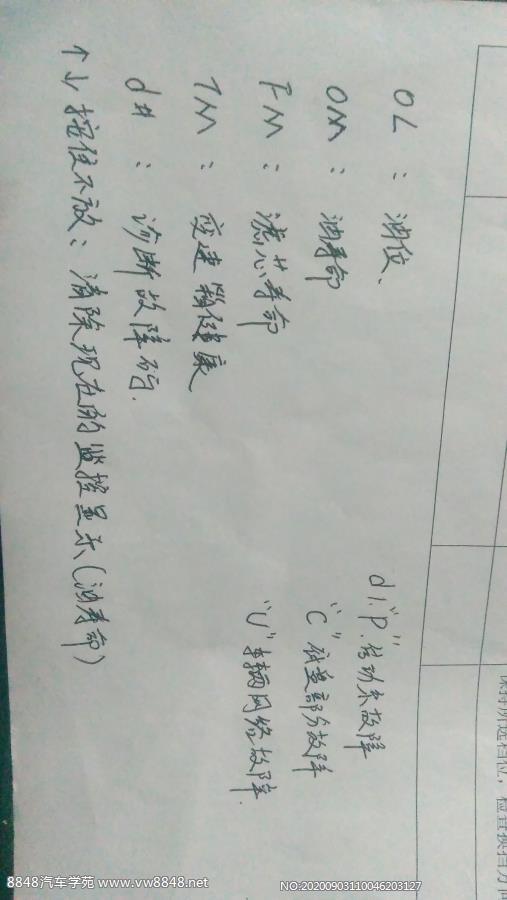 OL：油位、
OM：油寿命
FM：滤芯寿命
TM：变速箱健康
d#：诊断故障码.
↑↓按住不放：清除现在的监控显示(油寿命)
d1."P".传动系故障
"C"底盘部分故障
"U"车辆网络故障.
保持所选档位，检查换挡方向
8848汽车学苑 www.vw8848.net
NO:20200903110046203127